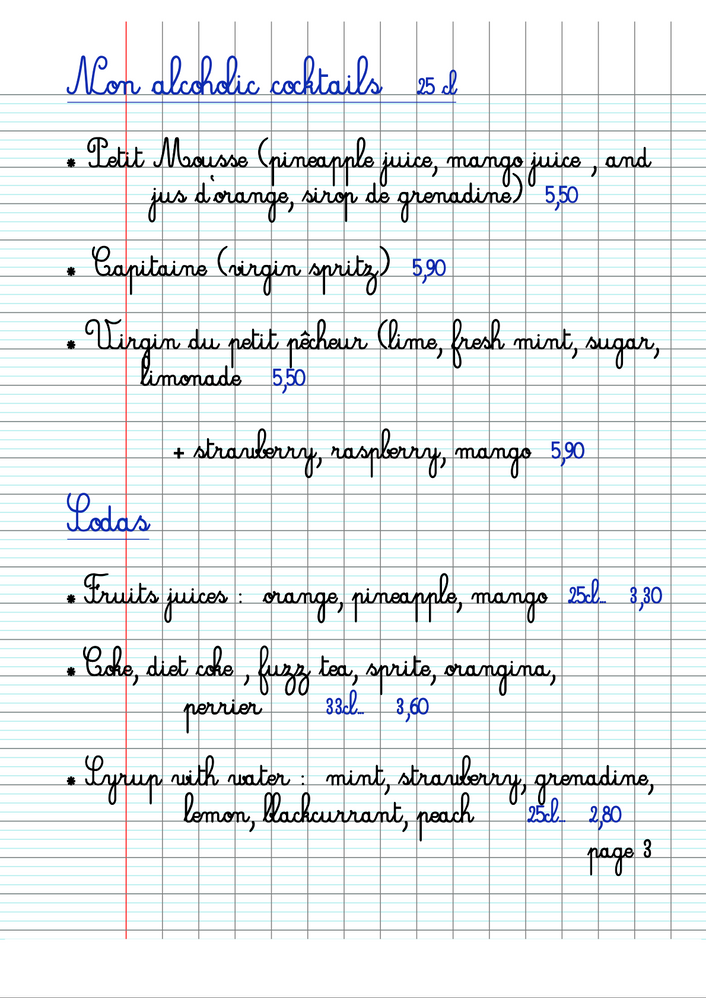 Non alcoholic cocktails 25 cl
* Petit Mousse (pineapple juice, mango juice , and
jus d'orange, sirop de grenadine) 5,50
* Capitaine (virgin spritz) 5,90
* Virgin du petit pêcheur (lime, fresh mint, sugar,
limonade 5,50
+ strawberry, raspberry, mango 5,90
Sodas
* Fruits juices : orange, pineapple, mango 25cl... 3,30
* Coke, diet coke , fuzz tea, sprite, orangina,
perrier 33cl... 3,60
* Syrup with water : mint, strawberry, grenadine,
lemon, blackcurrant, peach 25cl... 2,80
page 3